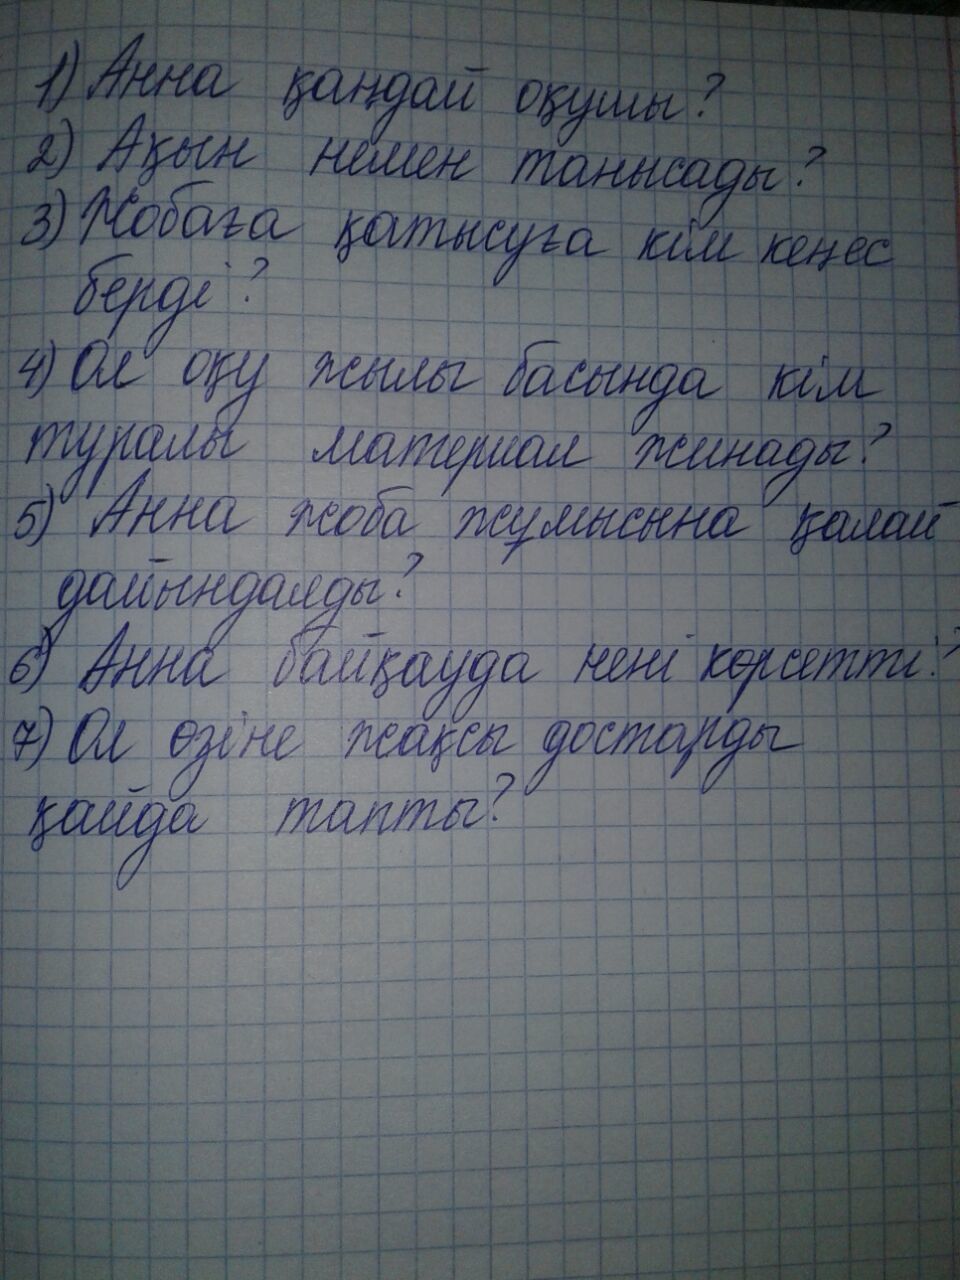 1) Анна қандай оқушы?
2) Ақын немен танысады?
3) Жобаға қатысуға кім кеңес
берді?
4) Ол оқу жылы басында кім
туралы материал жинады?
5) Анна жоба жұмысына қалай
дайындалды?
6) Анна байқауда нені көрсетті?
7) Ол өзіне жақсы достарды
қайда тапты?